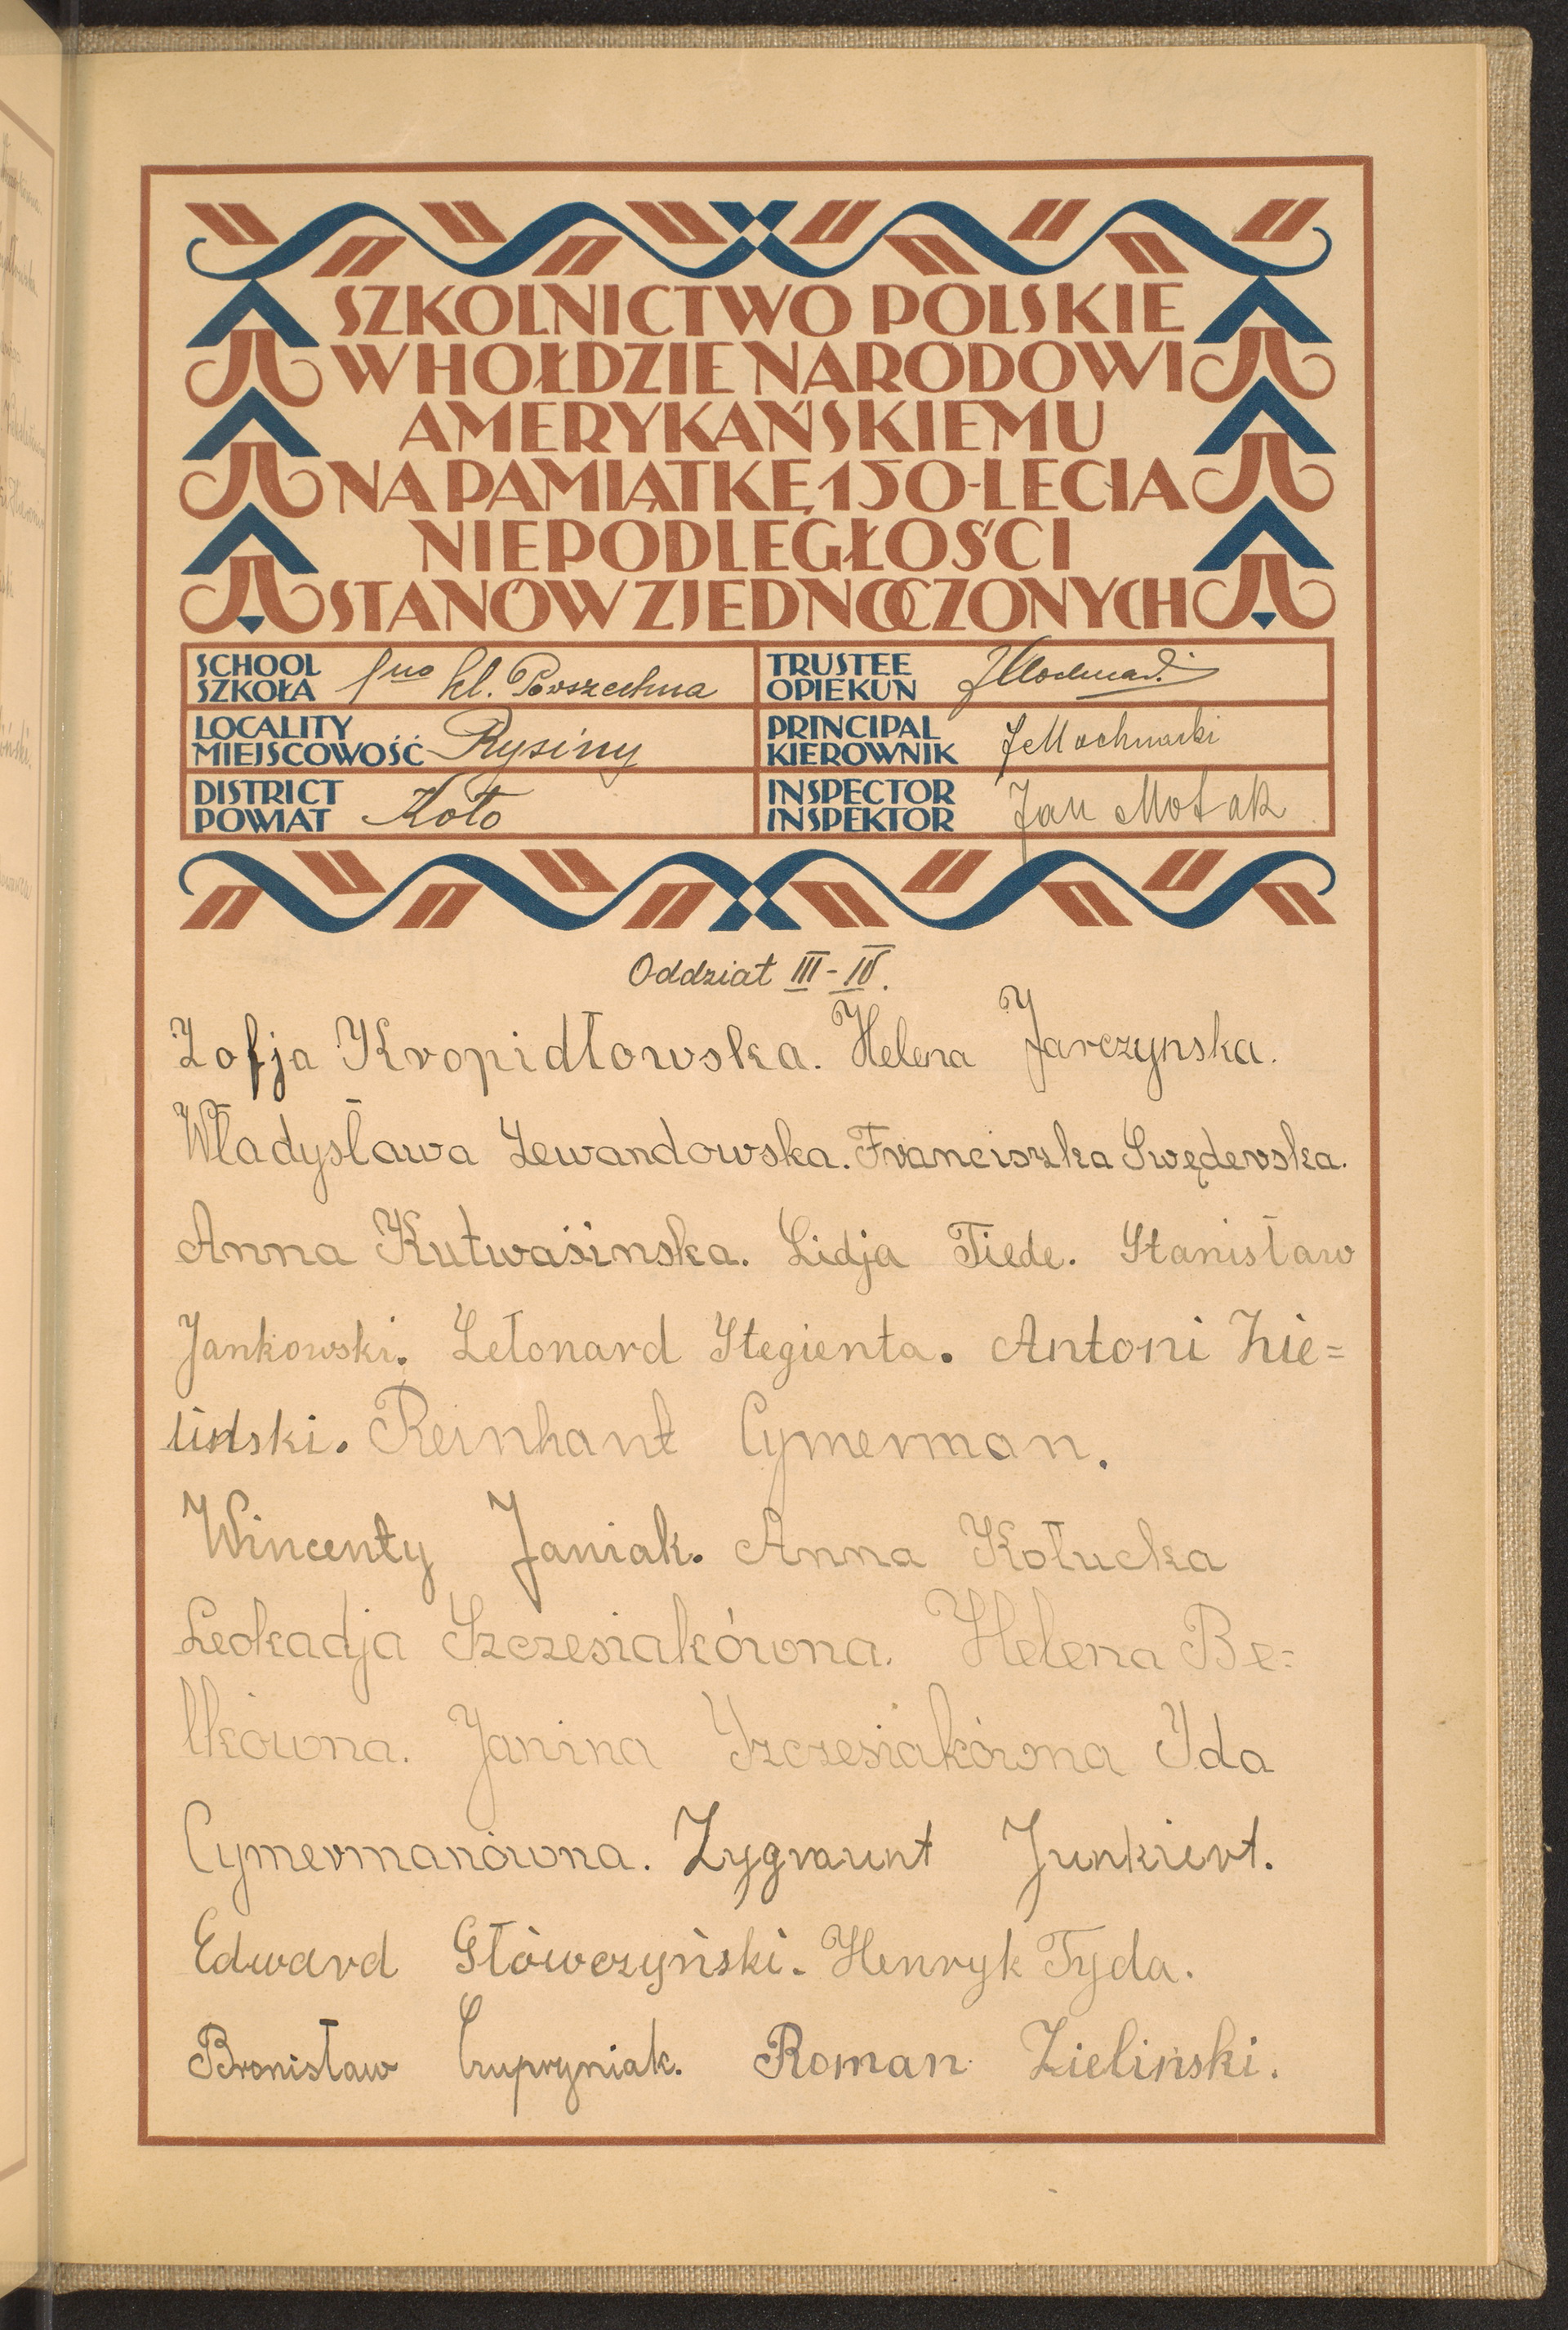 SZKOLNICTWO POLSKIE
W HOŁDZIE NARODOWI
AMERYKAŃSKIEMU
NA PAMIĄTKĘ 150-LECIA
NIEPODLEGŁOŚCI
STANÓW ZJEDNOCZONYCH
SCHOOL
SZKOŁA 1no kl. Powszechna
TRUSTEE
OPIEKUN JMochnacki
LOCALITY
MIEJSCOWOŚĆ Rysiny
PRINCIPAL
KIEROWNIK JMochnacki
DISTRICT
POWIAT Koło
INSPECTOR
INSPEKTOR Jan Motak
Oddział III-IV.
Zofja Kropidłowska. Helena Jarczynska.
Władysława Lewandowska. Franciszka Swęderska.
Anna Kutwasinska. Lidja Tiede. Stanisław
Jankowski. Letonard Stegienta. Antoni Zie=
liński. Reinhant Cymerman.
Wincenty Janiak. Anna Kołucka
Leokadja Szczesiakówna. Helena Be=
lkówna. Janina Szczesiakówna Ida
Cymermanówna. Zygmunt Junkiert.
Edward Główczyński. Henryk Tyda.
Bronisław Czupryniak. Roman Zieliński.